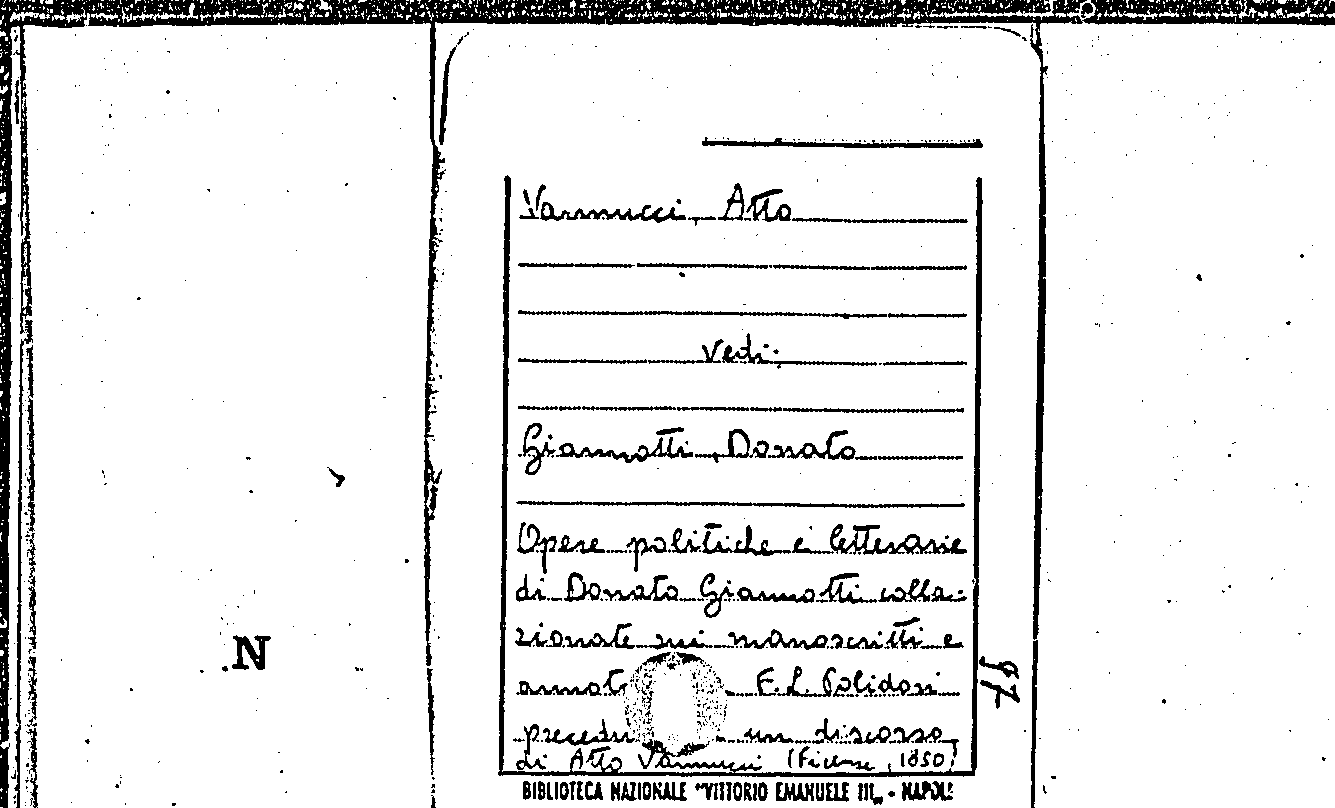 Vannucci, Atto
Vedi:
Giannotti, Donato
Opere politiche e letterarie
di Donato Giannotti colla-
zionate sui manoscritti e
annot F. L. Polidori
preced un discorso
di Atto Vannucci (Firenze, 1850)
97
N
BIBLIOTECA NAZIONALE "VITTORIO EMANUELE III" - NAPOLI